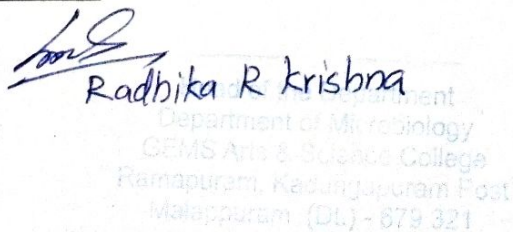 Radhika R Krishna
Head of the Department
Department of Microbiology
GEMS Arts & Science College
Ramapuram, Kadungapuram Post
Malappuram (Dt.) - 679 321